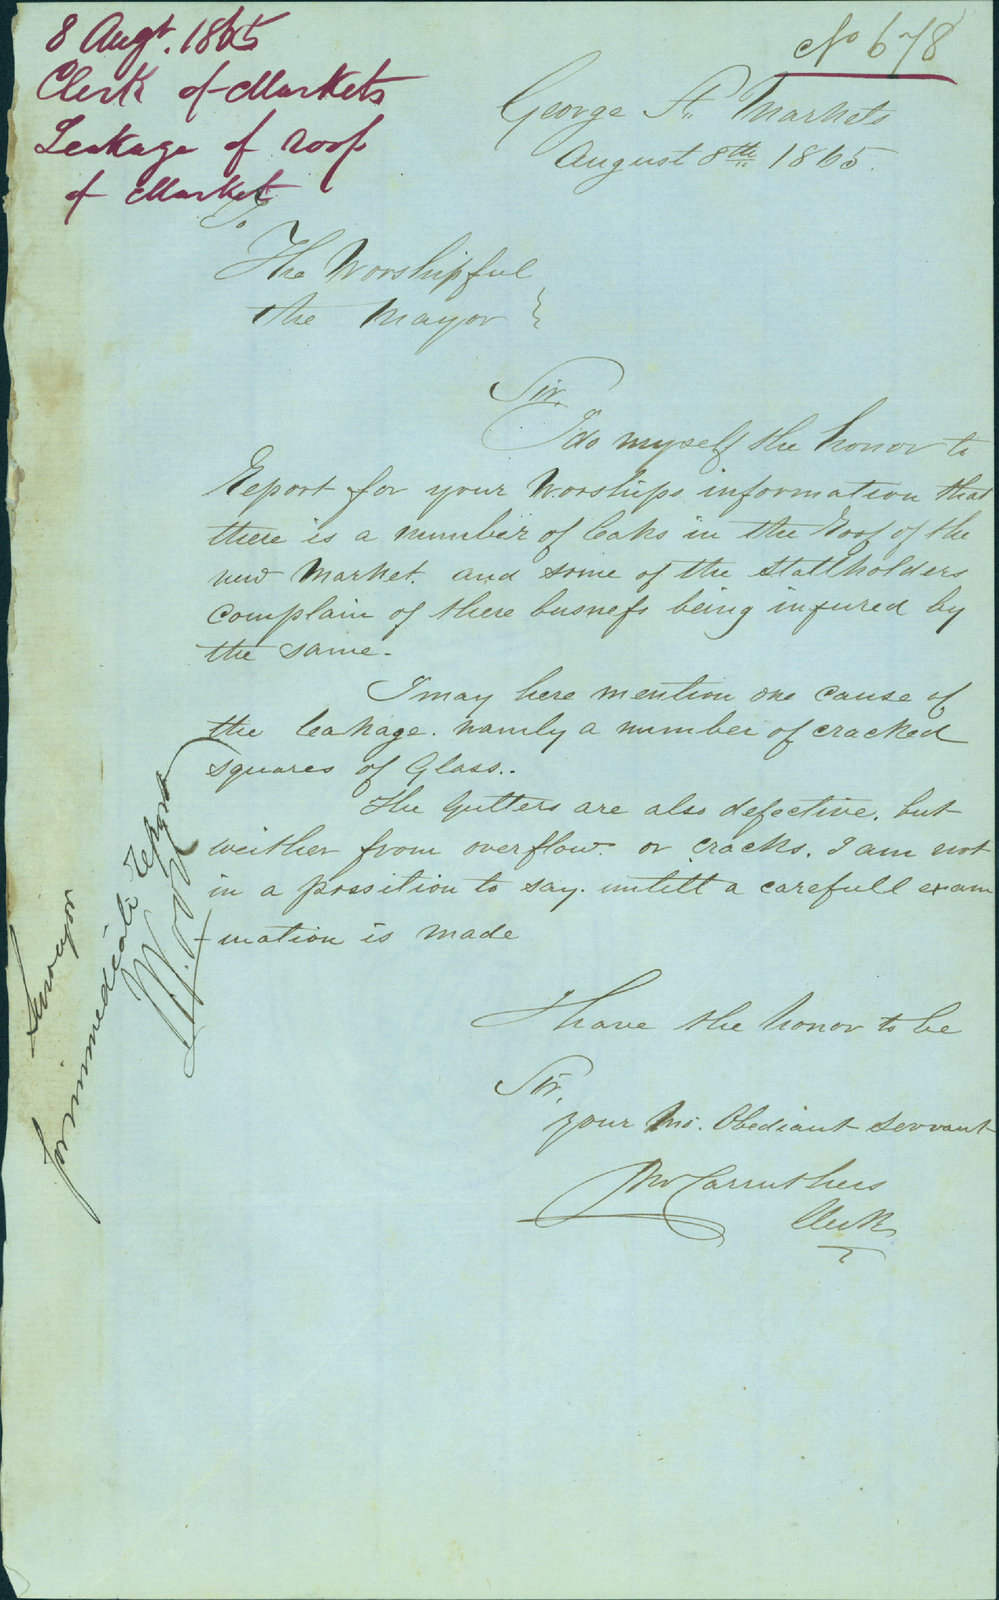 8 Augt. 1865
Clerk of Markets
Leakage of roof
of Market
No 678
George St. Markets
August 8th 1865.
To
The Worshipful
the Mayor }
Sir,
I do myself the honor to
Report for your Worships information that
there is a number of leaks in the Roof of the
new Market. and some of the Stallholders
complain of there busness being injured by
the same.
I may here mention one cause of
the leakage. namly a number of cracked
squares of Glass..
The Gutters are also defective, but
weither from overflow or cracks. I am not
in a possition to say. untill a carefull exam
-ination is made
I have the honor to be
Sir,
your Mo. Obediant servant
Jno Carruthers
Clerk
Surveyor
for immediate report